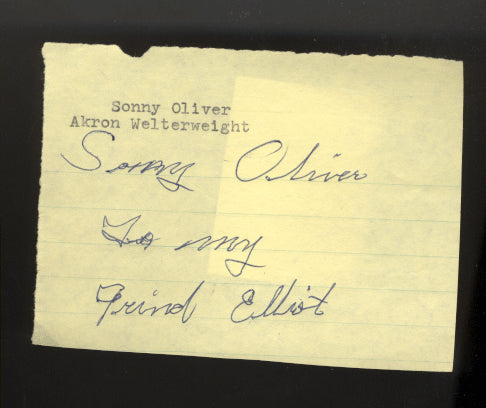 Sonny Oliver
Akron Welterweight
Sonny Oliver
To my
Frind Elliot